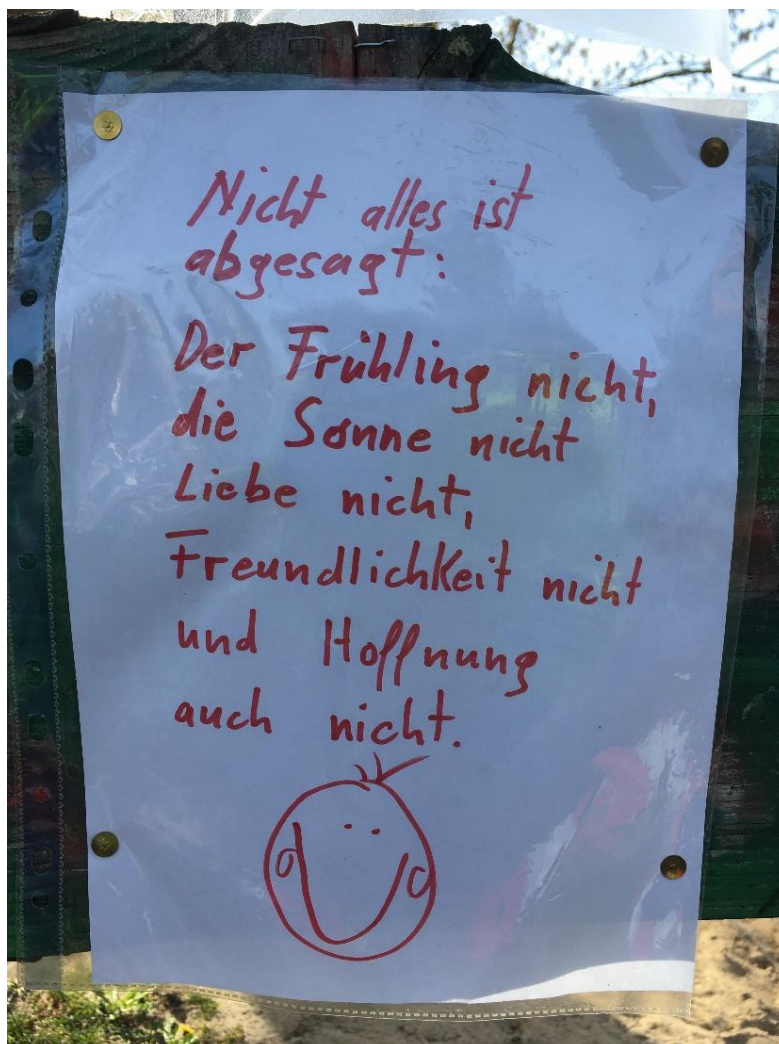 Nicht alles ist
abgesagt:
Der Frühling nicht,
die Sonne nicht
Liebe nicht,
Freundlichkeit nicht
und Hoffnung
auch nicht.